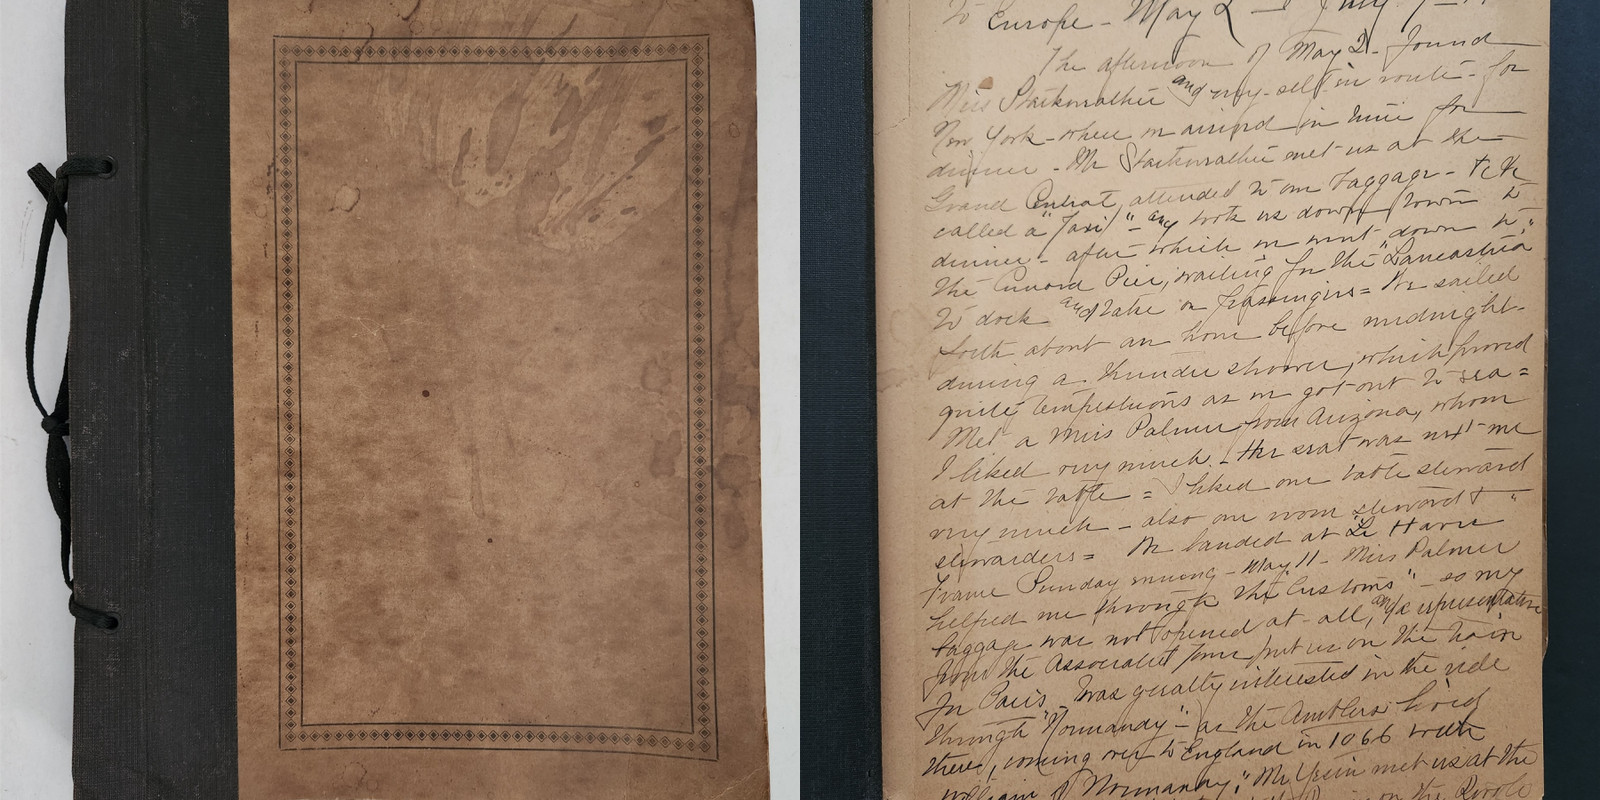 to Europe - May 2 - July
The afternoon of May 2 - found
Miss Starkweather and my-self in route - for
New York - where we arrived in time for
dinner - Mr Starkweather met us at the
Grand Central, attended to our baggage - &c He
called a "Taxi" - and took us down town to
dinner - after which we went down to
the Cunard Pier, waiting for the "Lancastria"
to dock and take on passengers = We sailed
forth about an hour before midnight -
during a thunder shower, which proved
quite tempestuous as we got out to sea =
Met a Miss Palmer from Arizona, whom
I liked very much - Her seat was next me
at the table = I liked our table steward
very much - also our room steward & "
stewardess = We landed at Le Havre
France Sunday morning - May 11 - Miss Palmer
helped me through the "Customs" - so my
baggage was not opened at - all, and a representative
from the Associated Tours put us on the train
for Paris, was greatly interested in the ride
through "Normandy" - as the Amblers lived
there, coming over to England in 1066 with
William of Normandy." Mr met us at the
on the Rivoli